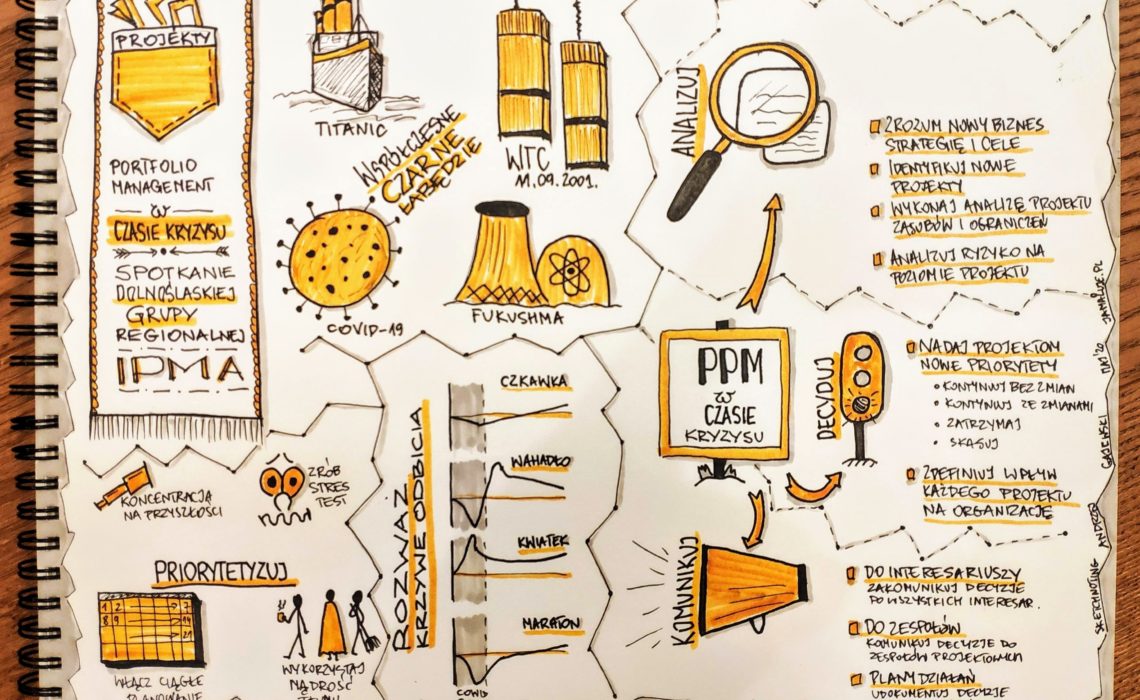 PROJEKTY
PORTFOLIO
MANAGEMENT
W
CZASIE KRYZYSU
SPOTKANIE
DOLNOŚLĄSKIEJ
GRUPY
REGIONALNEJ
IPMA
TITANIC
WTC
11.09.2001.
WSPÓŁCZESNE
CZARNE
ŁABĘDZIE
COVID-19
FUKUSHMA
ANALIZUJ
ZROZUM NOWY BIZNES
STRATEGIĘ I CELE
IDENTYFIKUJ NOWE
PROJEKTY
WYKONAJ ANALIZĘ PROJEKTU
ZASOBÓW I OGRANICZEŃ
ANALIZUJ RYZYKO NA
POZIOMIE PROJEKTU
PPM
W
CZASIE
KRYZYSU
DECYDUJ
NADAJ PROJEKTOM
NOWE PRIORYTETY
KONTYNUUJ BEZ ZMIAN
KONTYNUUJ ZE ZMIANAMI
ZATRZYMAJ
SKASUJ
ZDEFINIUJ WPŁYW
KAŻDEGO PROJEKTU
NA ORGANIZACJĘ
KOMUNIKUJ
DO INTERESARIUSZY
ZAKOMUNIKUJ DECYZJE
DO WSZYSTKICH INTERESAR.
DO ZESPOŁÓW
KOMUNIKUJ DECYZJE DO
ZESPOŁÓW PROJEKTOWYCH
PLANY DZIAŁAŃ
UDOKUMENTUJ DECYZJE
KONCENTRACJA
NA PRZYSZŁOŚCI
ZRÓB
STRES
TEST
PRIORYTETYZUJ
1 2 7
8 9 14
21
WŁĄCZ CIĄGŁE
PLANOWANIE
WYKORZYSTAJ
MĄDROŚĆ
ROZWAŻ
KRZYWE ODBICIA
CZKAWKA
WAHADŁO
KWIATEK
MARATON
COVID
SKETCHNOTING ANDRZEJ GAJEWSKI MAJ '20 JAMAJLOE.PL